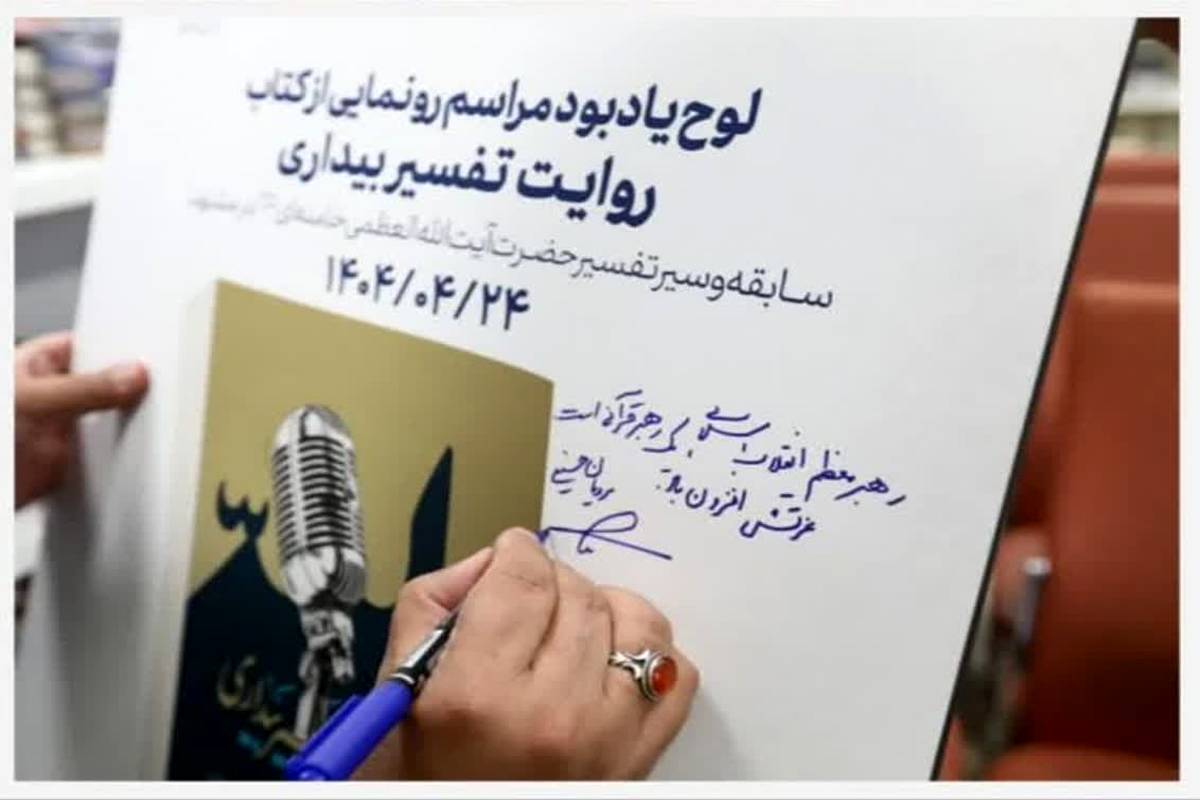 لوح یادبود مراسم رونمایی از کتاب
روایت تفسیر بیداری
سابقه و سیر تفسیر حضرت آیت الله العظمی خامنه‌ای در مشهد
۱۴۰۴/۰۴/۲۴
رهبر معظم انقلاب اسلامی رهبر قرآنی است
عزتش افزون باد
بیداری